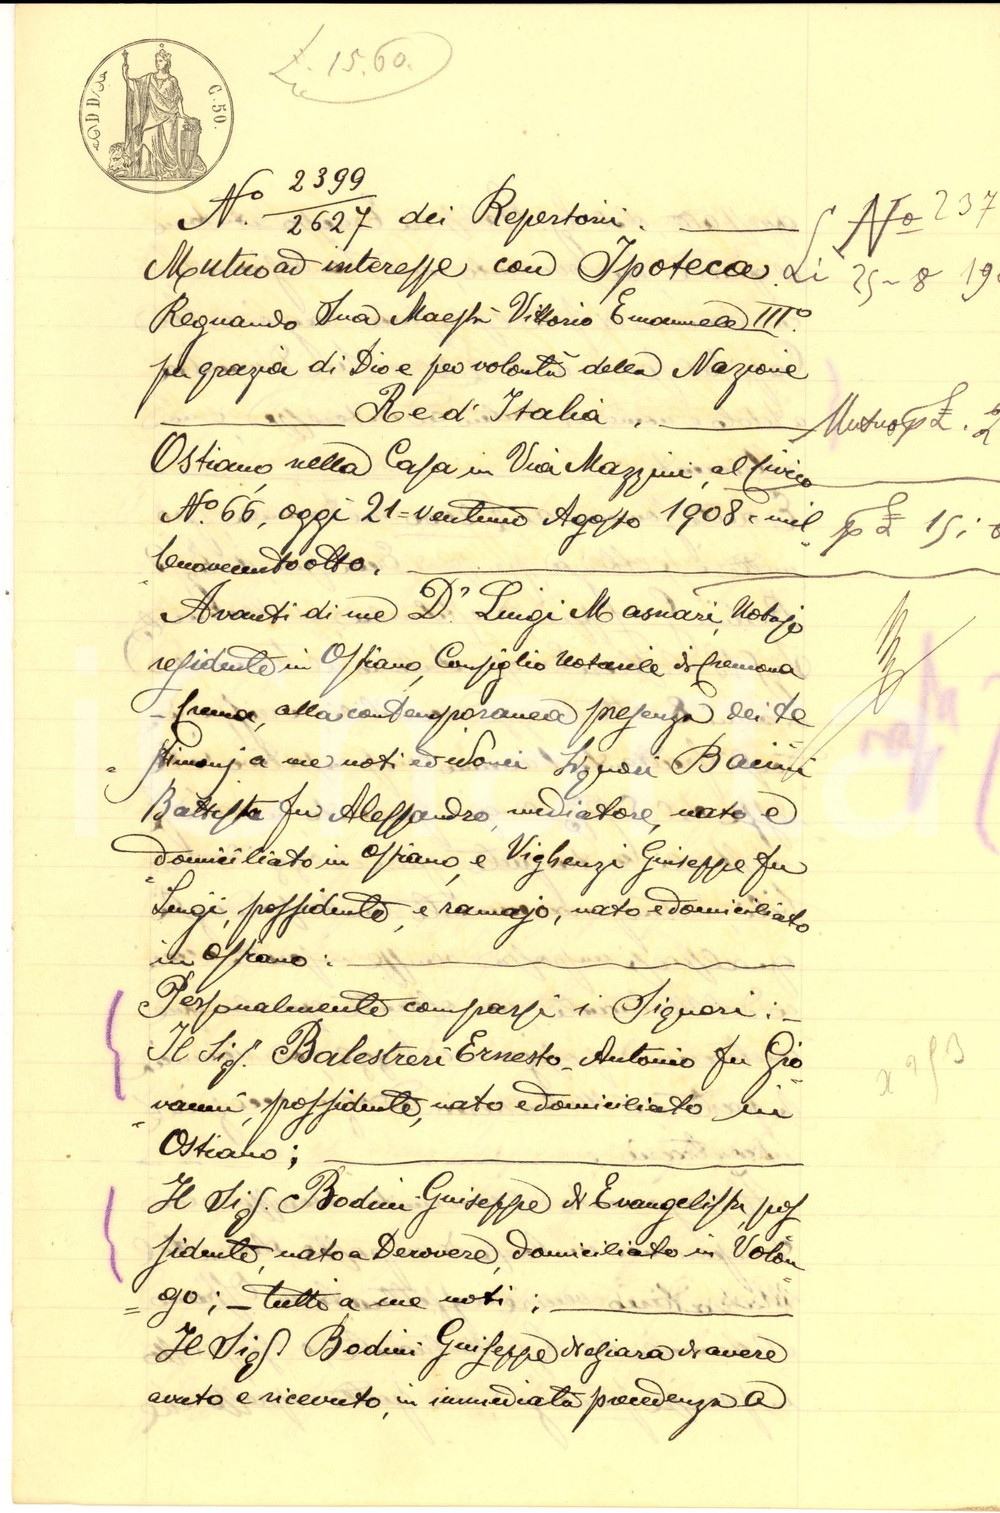 £. 15.60.
C. 50.
N.º 2399
2627 dei Repertori.
Nº 237
Mutuo ad interesse con Ipoteca.
Li 25-8 190
Regnando Sua Maestà Vittorio Emanuele IIIº
per grazia di Dio e per volontà della Nazione
Re d'Italia.
Mutuo p £. 2
Ostiano, nella Casa in Via Mazzini, al Civico
Nº. 66, oggi 21=ventuno Agosto 1908=mil
p £ 15:
lenovecentootto.
Avanti di me D.r Luigi Masnari, Notajo
residente in Ostiano, Consiglio Notarile di Cremona
-Crema, alla contemporanea presenza dei te
stimonj a me noti ed idonei Signori Bacini
Battista fu Alessandro, mediatore, nato e
domiciliato in Ostiano, e Vighenzi Giuseppe fu
Luigi, possidente, e ramajo, nato e domiciliato
in Ostiano:
Personalmente comparsi i Signori:
Il Sig.r Balestreri Ernesto-Antonio fu Gio
vanni, possidente, nato e domiciliato in
Ostiano;
Il Sig.r Bodini Giuseppe di Evangelista, pos
sidente, nato a Derovere, domiciliato in Volon
go; - tutti a me noti;
Il Sig.r Bodini Giuseppe dichiara di avere
avuto e ricevuto, in immediata precedenza a